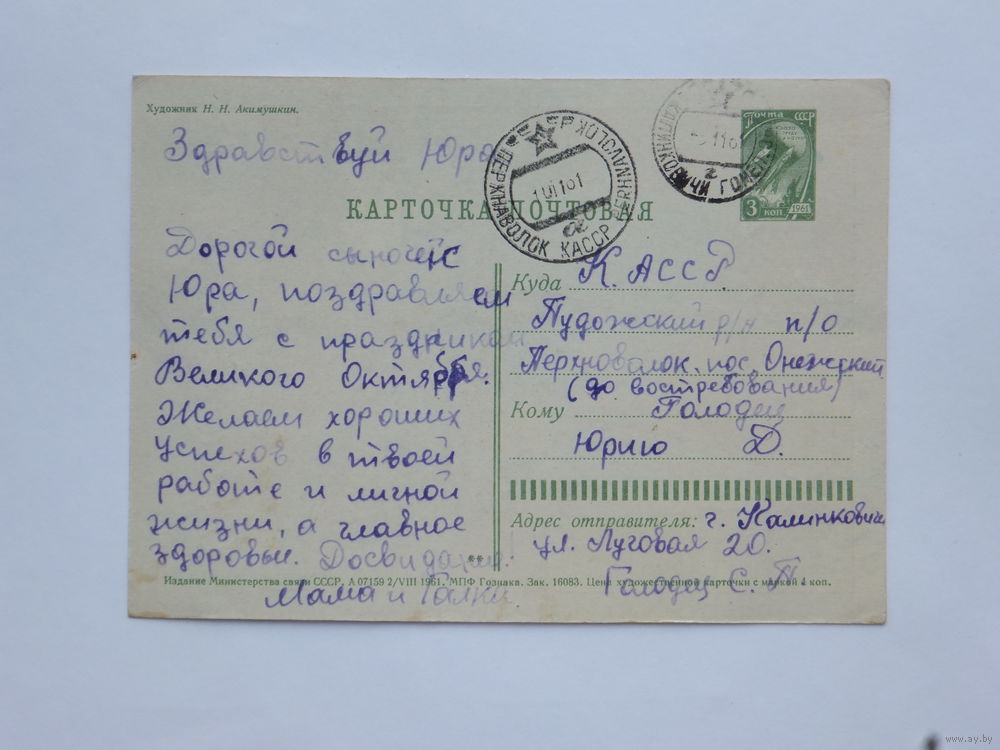 Художник Н. Н. Акимушкин.
Здравствуй Юра
КАРТОЧКА ПОЧТОВАЯ
Дорогой сыночек
Юра, поздравляем
тебя с праздником
Великого Октября.
Желаем хороших
успехов в твоей
работе и личной
жизни, а главное
здоровьи. Досвидания.
Мама и Галка.
ПЕРХНАВОЛОК КАССР
PERHNAVOLOK
КАЛИНКОВИЧИ ГОМЕЛ
Почта СССР
3 коп
1961
Куда К. АССР
Пудожский р/н п/о
Перхноволок. пос. Онежский
(до востребования)
Кому Голодец
Юрию Д.
Адрес отправителя: г. Калинковичи
ул. Луговая 20.
Голодец С. П.
**
Издание Министерства связи СССР. А 07159 2/VIII 1961. МПФ Гознака. Зак. 16083. Цена художественной карточки с маркой 4 коп.
www.ay.by